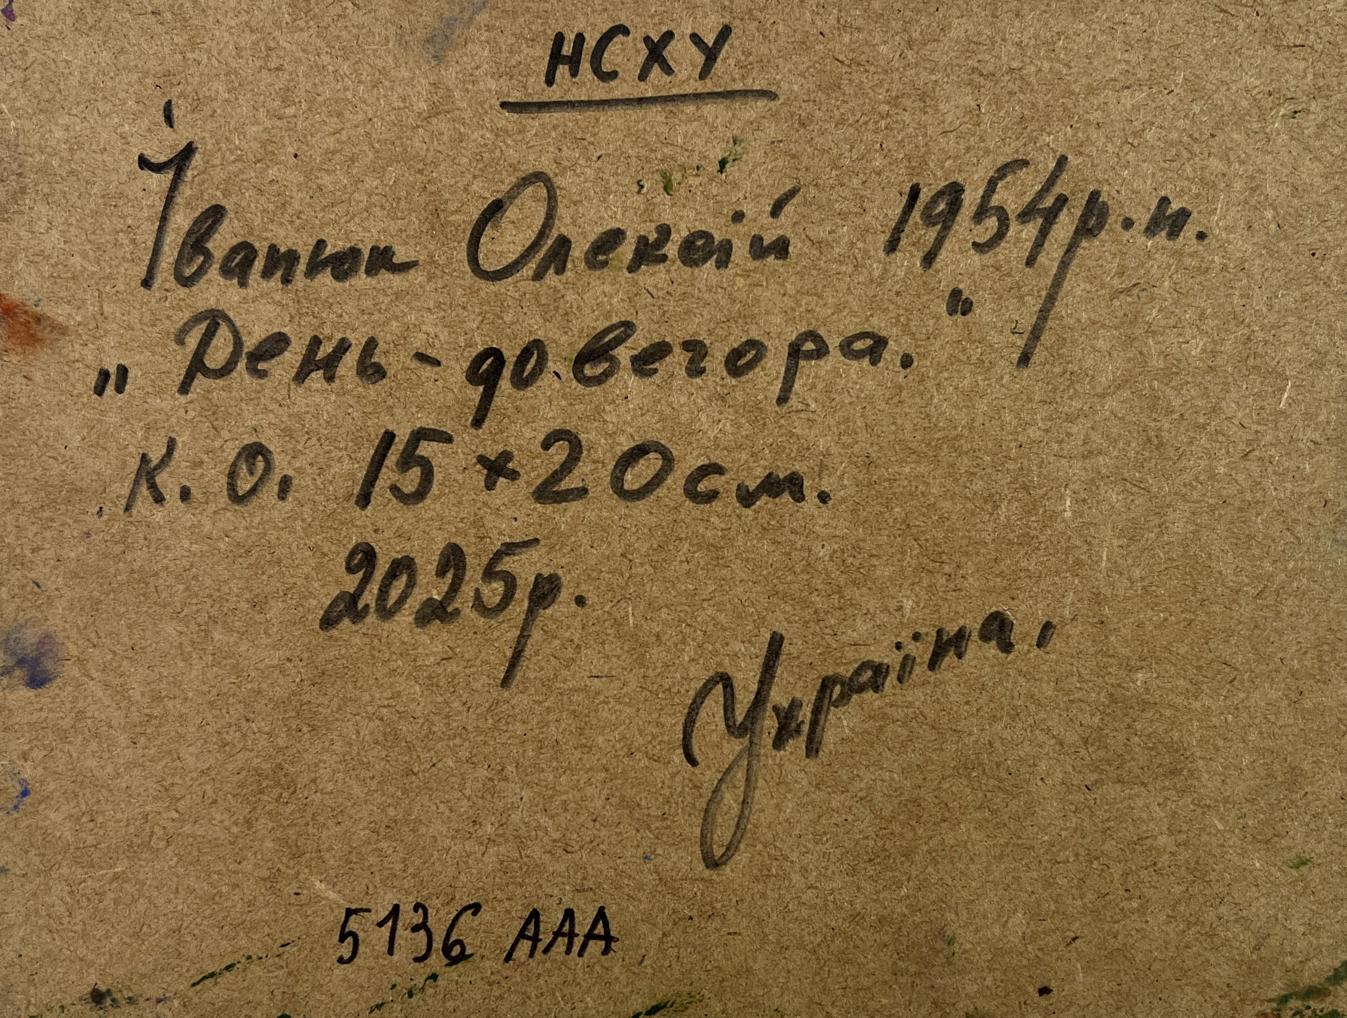 НСХУ
Іванюк Олексій 1954р.н.
„День-до вечора."
К.О. 15×20см.
2025р.
Україна,
5136 ААА